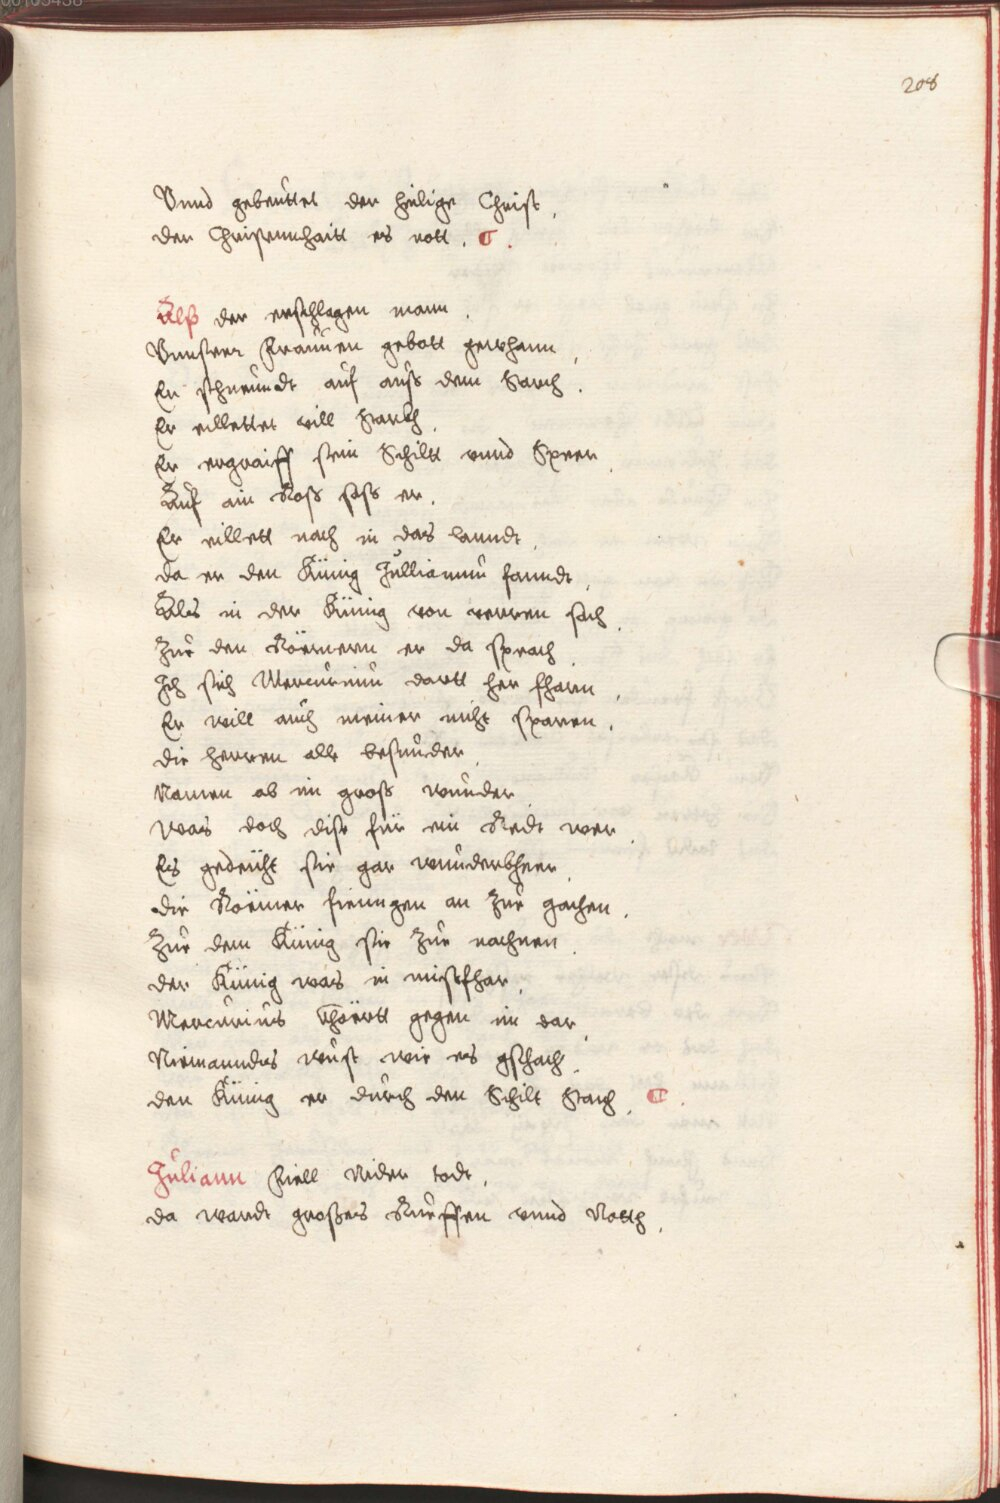 208
Vnnd gebeuttet der heilige Christ,
der Christennhaitt es nott. C.
Alß der erschlagen mann.
Vnnser Frauuen gebott gewhann,
Er schneundt auf auss dem Sarch.
Er eillettet vill starch,
Er ergraiff sein Schiltt vnnd Speer,
Auf ain Ross sass er.
Er eillett nach in das lanndt,
da er den Künig Jullianum fanndt,
Als in der Künig von verren sach,
Zue den Römern er da sprach,
Ich sich Mercurium dortt her fharn,
Er will auch meiner nicht sparen,
die herren alle besunder,
Namen ab im gross wunder,
Was doch dise für ein Redt wer,
Es gedeucht sie gar wunderbheer,
die Römer fienngen an Zue gachen,
Zue dem Künig sie Zue nachnen,
der Künig was in missfhar,
Mercurius khörtt gegen im dar,
Niemanndts wust wie es gschach,
den Künig er durch den Schilt Stach, C.
Juliann Fiell Nider todt,
da wardt grosses Rueffen vnnd Notth,